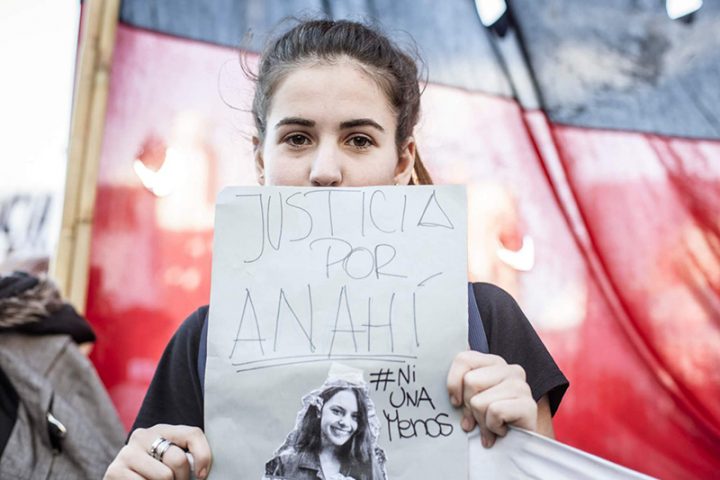 JUSTICIA
POR
ANAHÍ
#Ni
UNA
Menos